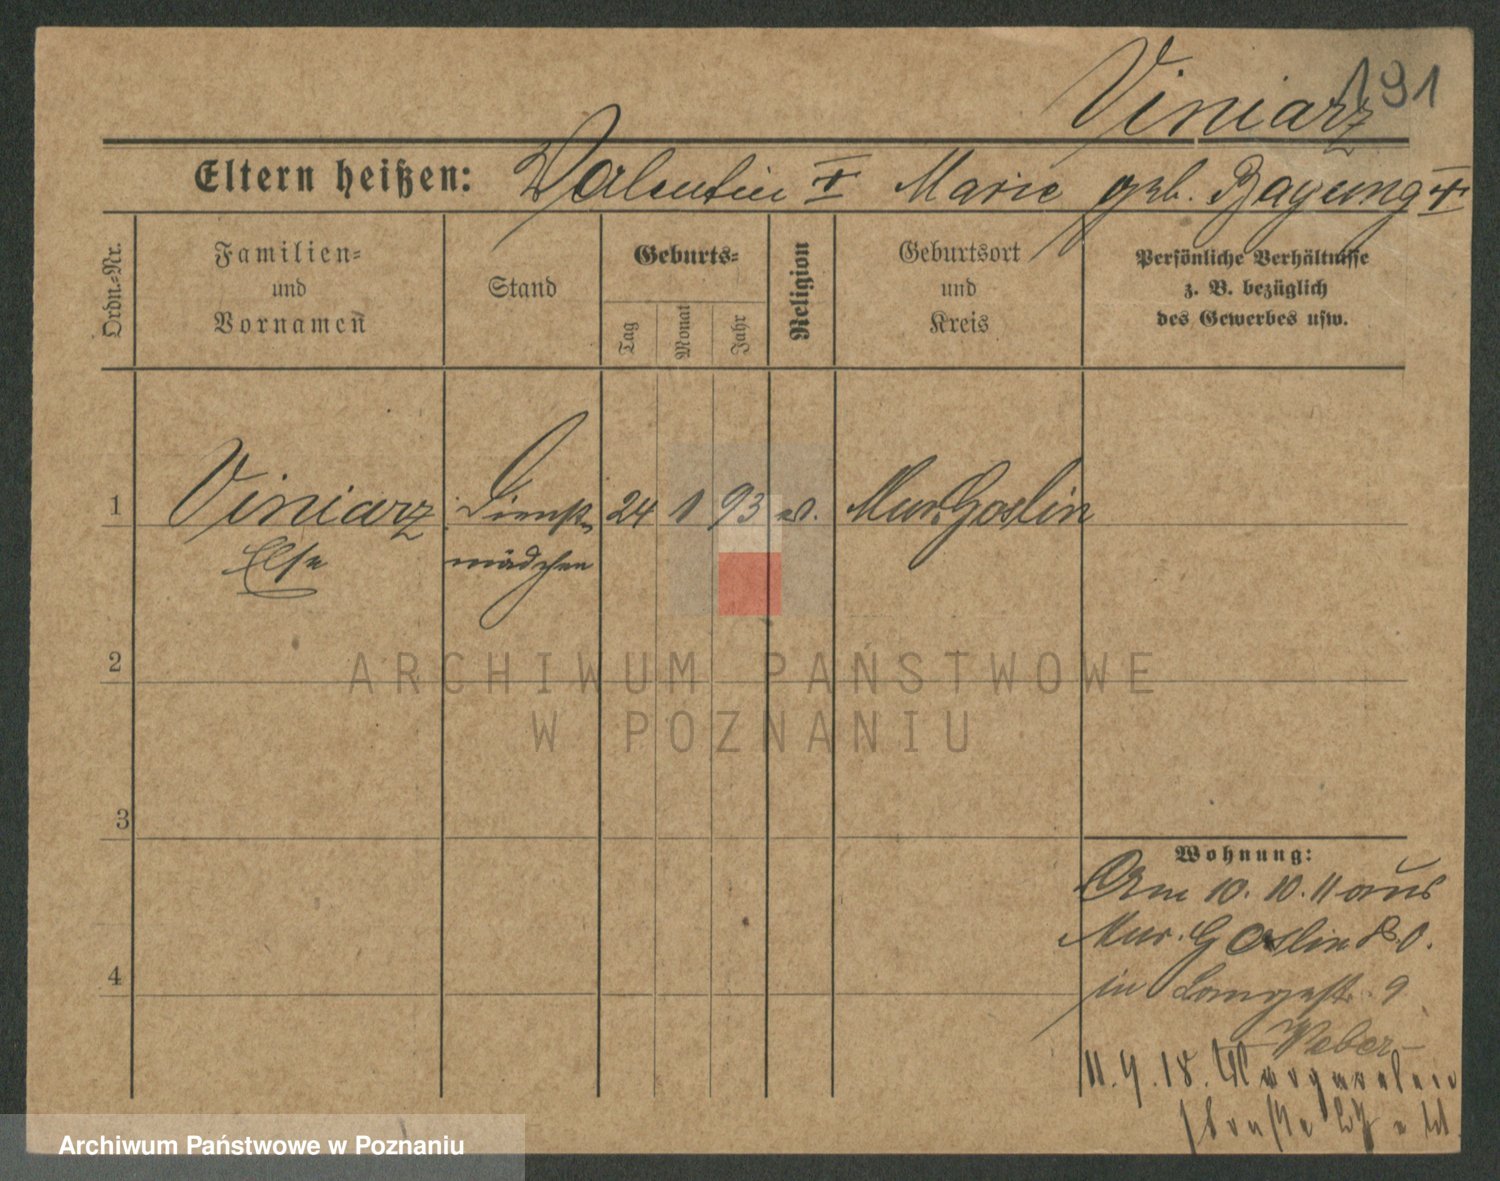 191
Viniarz
Eltern heißen: Valentin † Marie geb. †
Ordn.-Nr.
Familien-
und
Vornamen
Stand
Geburts-
Tag
Monat
Jahr
Religion
Geburtsort
und
Kreis
Persönliche Verhältnisse
z. B. bezüglich
des Gewerbes usw.
1 Viniarz Dienst- 24 1 93 ev. Mur. Goslin
Else mädchen
2
3
4
Wohnung:
Am 10. 10. 11 aus
Mur. Goslin
in Langestr. 9
Weber
11. 4. 18.
straße
ARCHIWUM PAŃSTWOWE
W POZNANIU
Archiwum Państwowe w Poznaniu